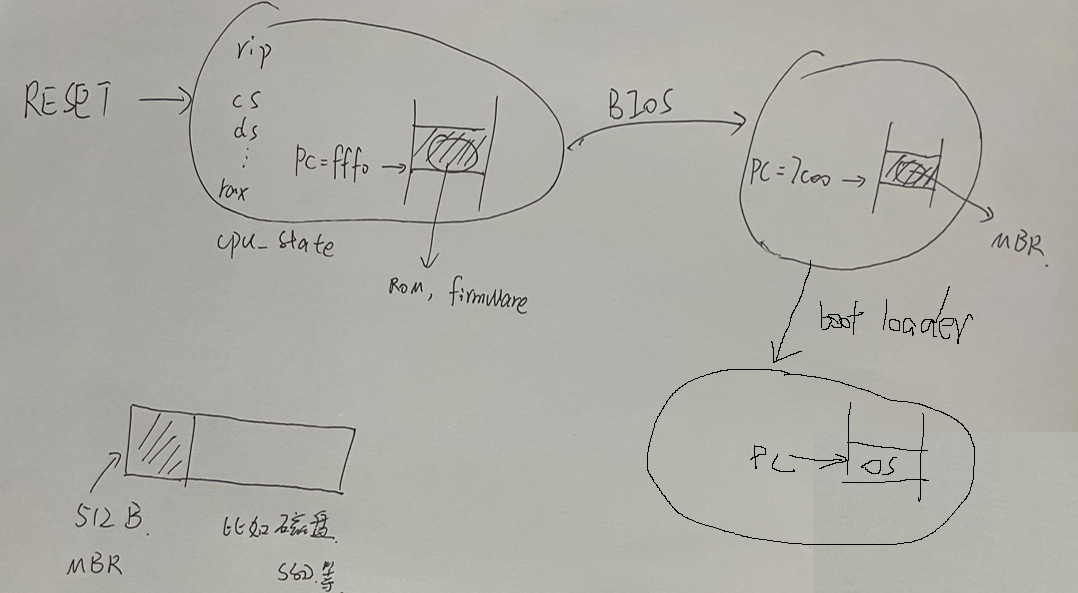 RESET
rip
cs
ds
⋮
rax
PC=fff0
cpu_state
ROM, firmware
BIOS
PC=7c00
MBR.
boot loader
PC
OS
512 B.
MBR
比如磁盘.
SSD.等.